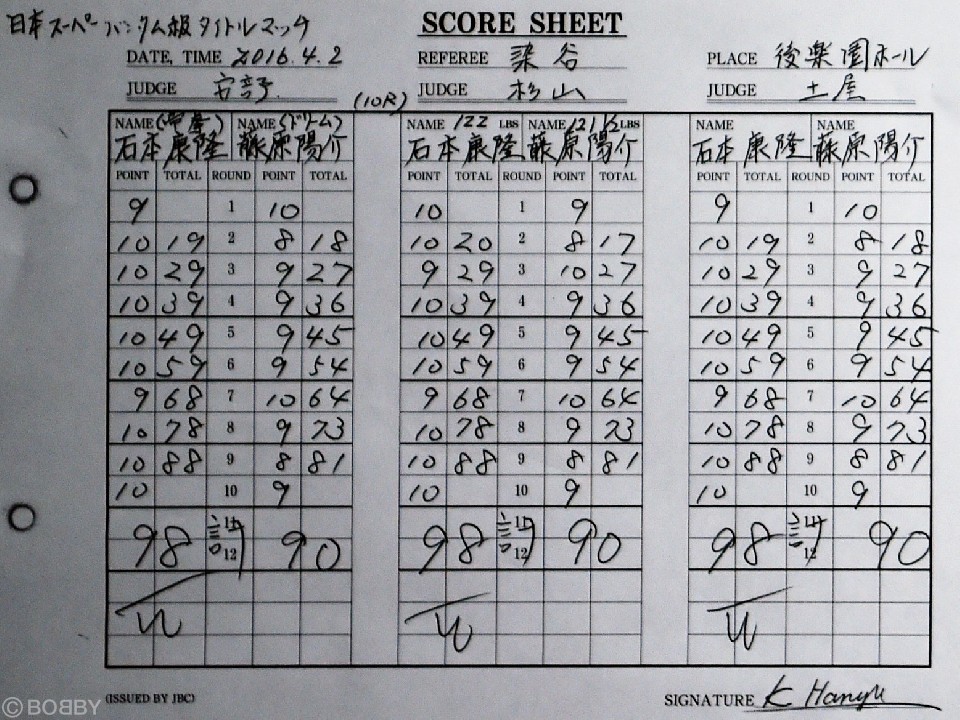 日本スーパーバンタム級タイトルマッチ
SCORE SHEET
DATE, TIME 2016.4.2 REFEREE 染谷 PLACE 後楽園ホール
JUDGE 安部 JUDGE 杉山 JUDGE 土屋
(10R)
NAME NAME (ドリーム) NAME 122 LBS NAME 121 1/2 LBS NAME NAME
石本康隆 藤原陽介 石本康隆 藤原陽介 石本康隆 藤原陽介
POINT TOTAL ROUND POINT TOTAL POINT TOTAL ROUND POINT TOTAL POINT TOTAL ROUND POINT TOTAL
9 1 10 10 1 9 9 1 10
10 19 2 8 18 10 20 2 8 17 10 19 2 8 18
10 29 3 9 27 9 29 3 10 27 10 29 3 9 27
10 39 4 9 36 10 39 4 9 36 10 39 4 9 36
10 49 5 9 45 10 49 5 9 45 10 49 5 9 45
10 59 6 9 54 10 59 6 9 54 10 59 6 9 54
9 68 7 10 64 9 68 7 10 64 9 68 7 10 64
10 78 8 9 73 10 78 8 9 73 10 78 8 9 73
10 88 9 8 81 10 88 9 8 81 10 88 9 8 81
10 10 9 10 10 9 10 10 9
11 11 11
98 計 90 98 計 90 98 計 90
12 12 12
W W W
(ISSUED BY JBC) SIGNATURE K Hanyu
©BOBBY